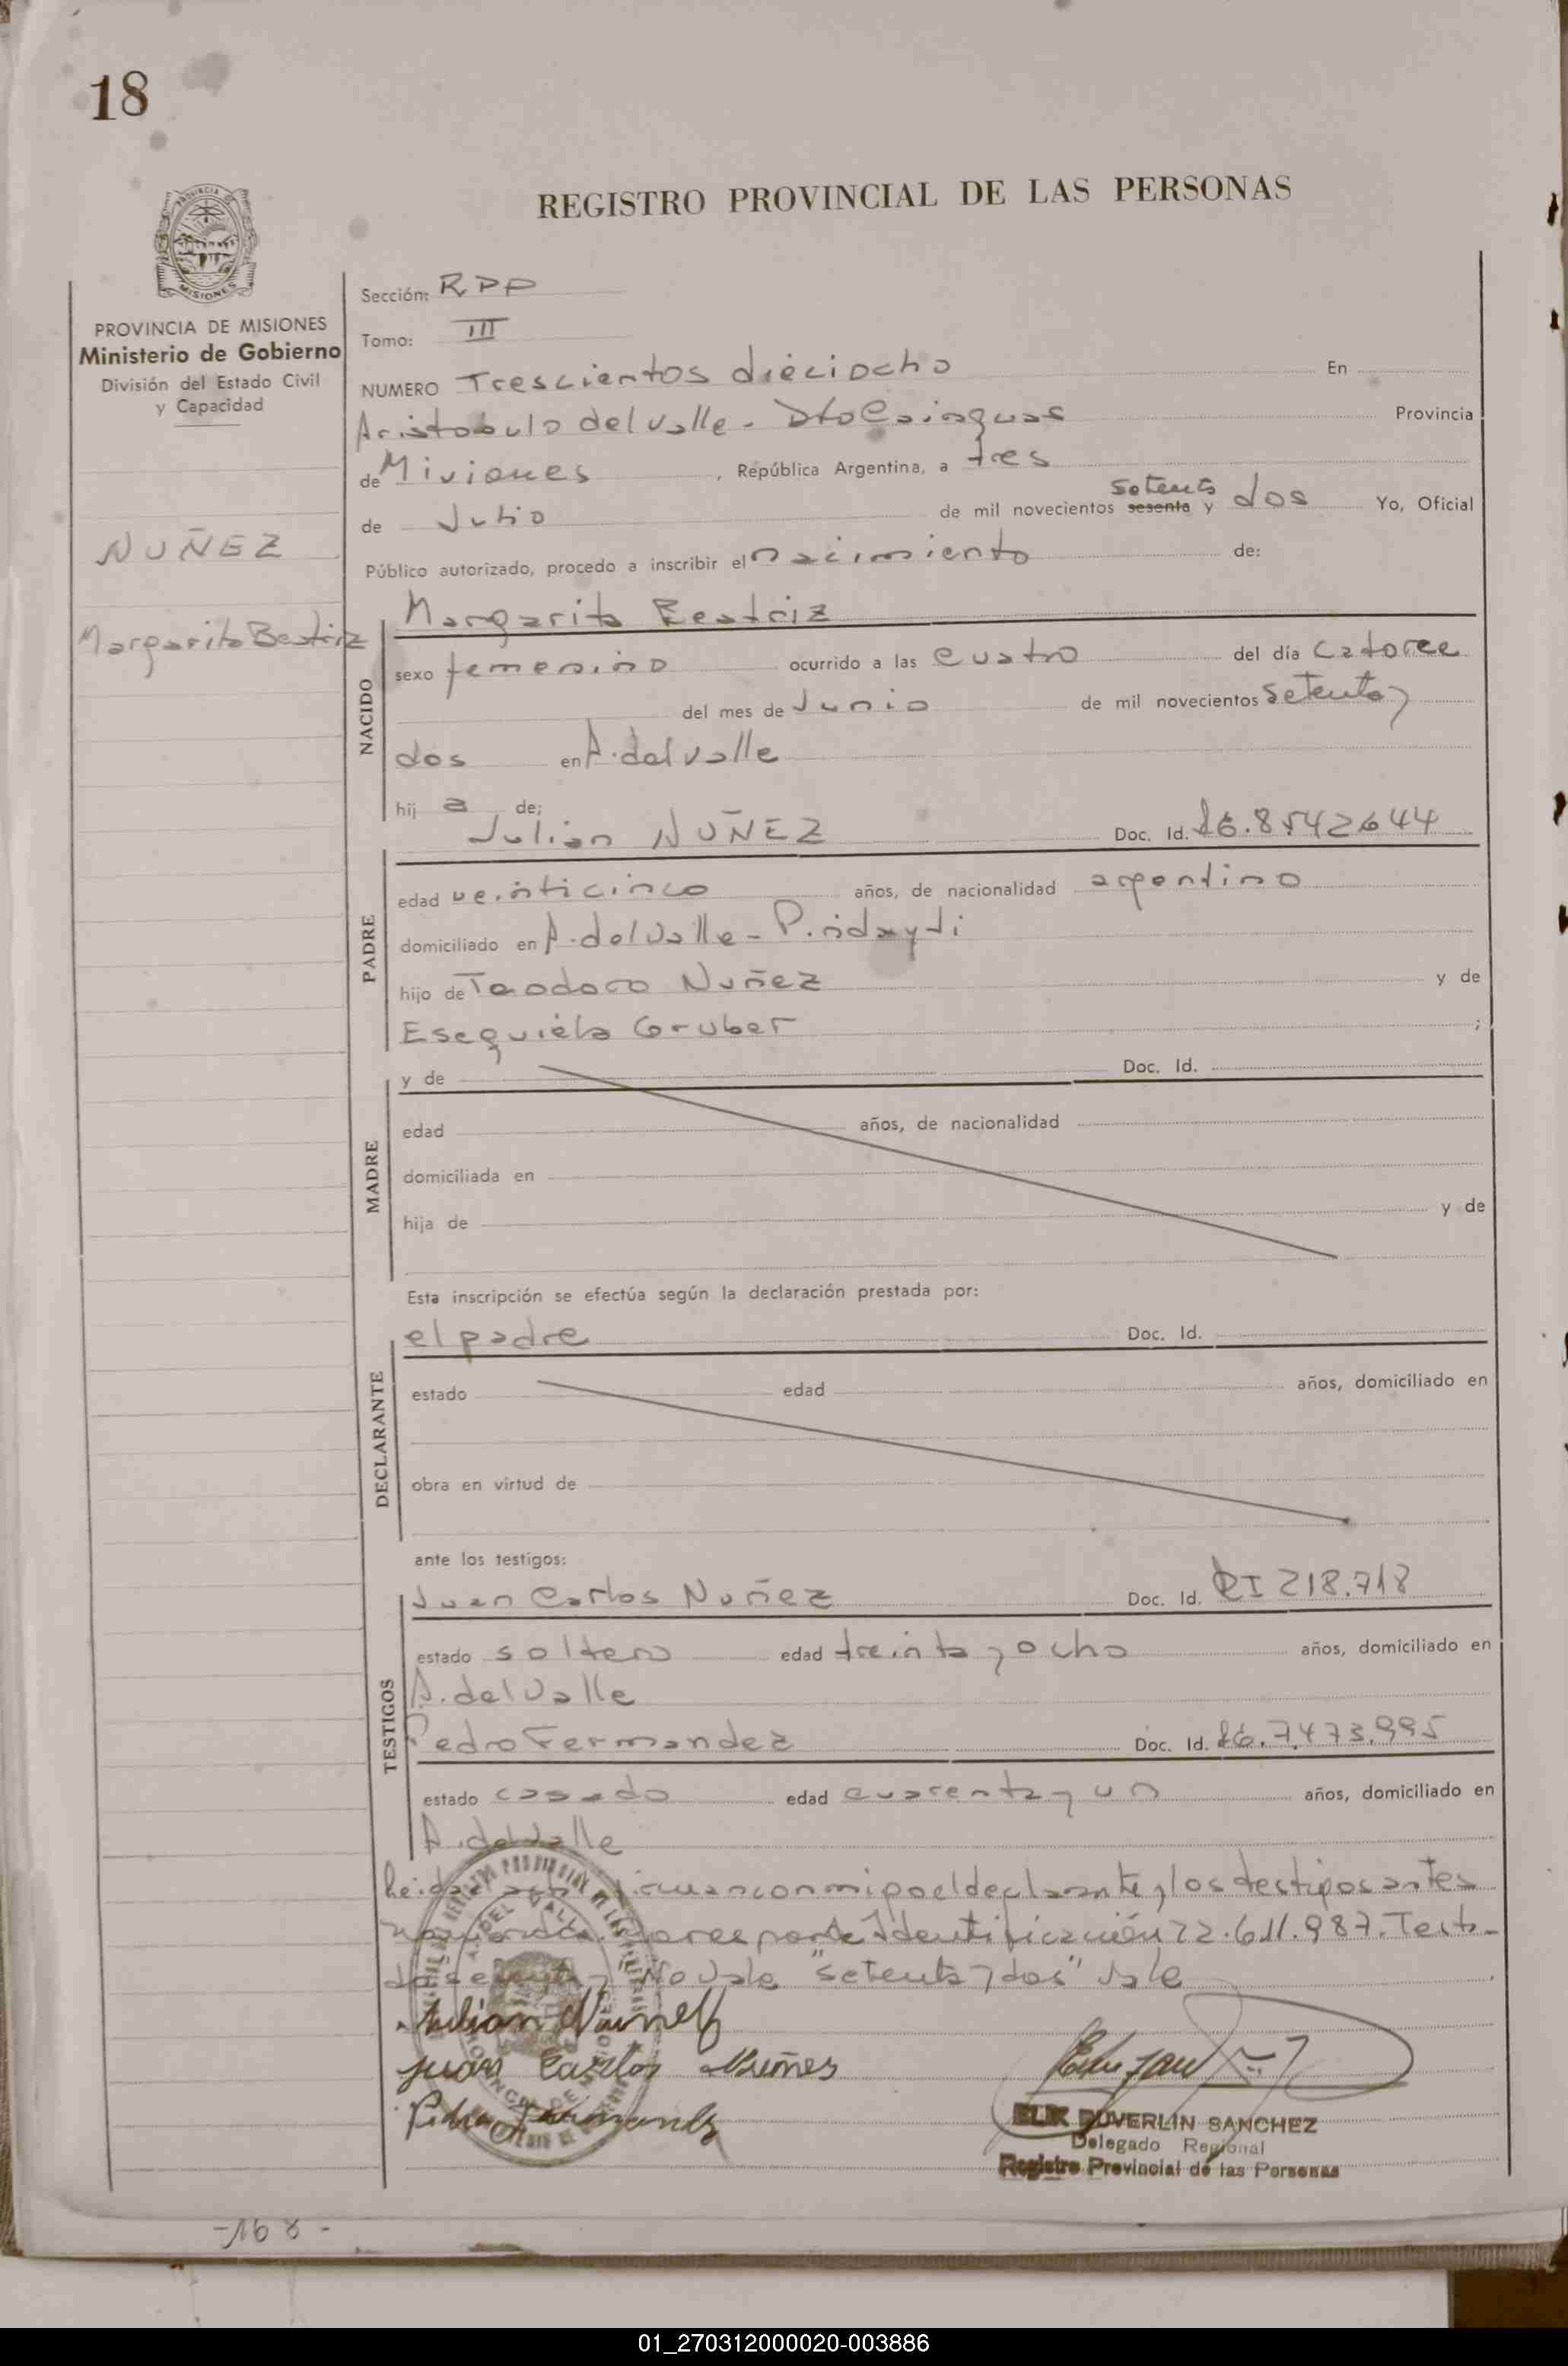 18
REGISTRO PROVINCIAL DE LAS PERSONAS
PROVINCIA DE MISIONES
Ministerio de Gobierno
División del Estado Civil
y Capacidad
NUÑEZ
Margarita Beatriz
Sección: RPP
Tomo: III
NUMERO Trescientos dieciocho En
Aristobulo del Valle - Dto Cainguas Provincia
de Misiones, República Argentina, a tres
setenta
de Julio de mil novecientos sesenta y dos Yo, Oficial
Público autorizado, procedo a inscribir el nacimiento de:
Margarita Beatriz
NACIDO
sexo femenino ocurrido a las cuatro del día catorce
del mes de Junio de mil novecientos setenta y
dos en A. del Valle
hij a de;
Julian NUÑEZ Doc. Id.
PADRE
edad veinticinco años, de nacionalidad argentino
domiciliado en A. del Valle - Pindayti
hijo de Teodoro Nuñez y de
Esequiela Gruber ;
MADRE
y de Doc. Id.
edad años, de nacionalidad
domiciliada en
hija de y de
Esta inscripción se efectúa según la declaración prestada por:
el padre Doc. Id.
DECLARANTE
estado edad años, domiciliado en
obra en virtud de
ante los testigos:
Juan Carlos Nuñez Doc. Id. RI 218.718
TESTIGOS
estado soltero edad treinta y ocho años, domiciliado en
A. del Valle
Pedro Fernandez Doc. Id. 7.473.995
estado casado edad cuarenta y un años, domiciliado en
A. del Valle
firman conmigo el declarante y los testigos antes
Identificación 22.611.987. Testa-
No vale "setenta y dos" vale
Julian Nuñez
Juan Carlos Nuñes
Pedro Fernandez
ELIX DUVERLIN SANCHEZ
Delegado Regional
Registro Provincial de las Personas
-168-
01_270312000020-003886